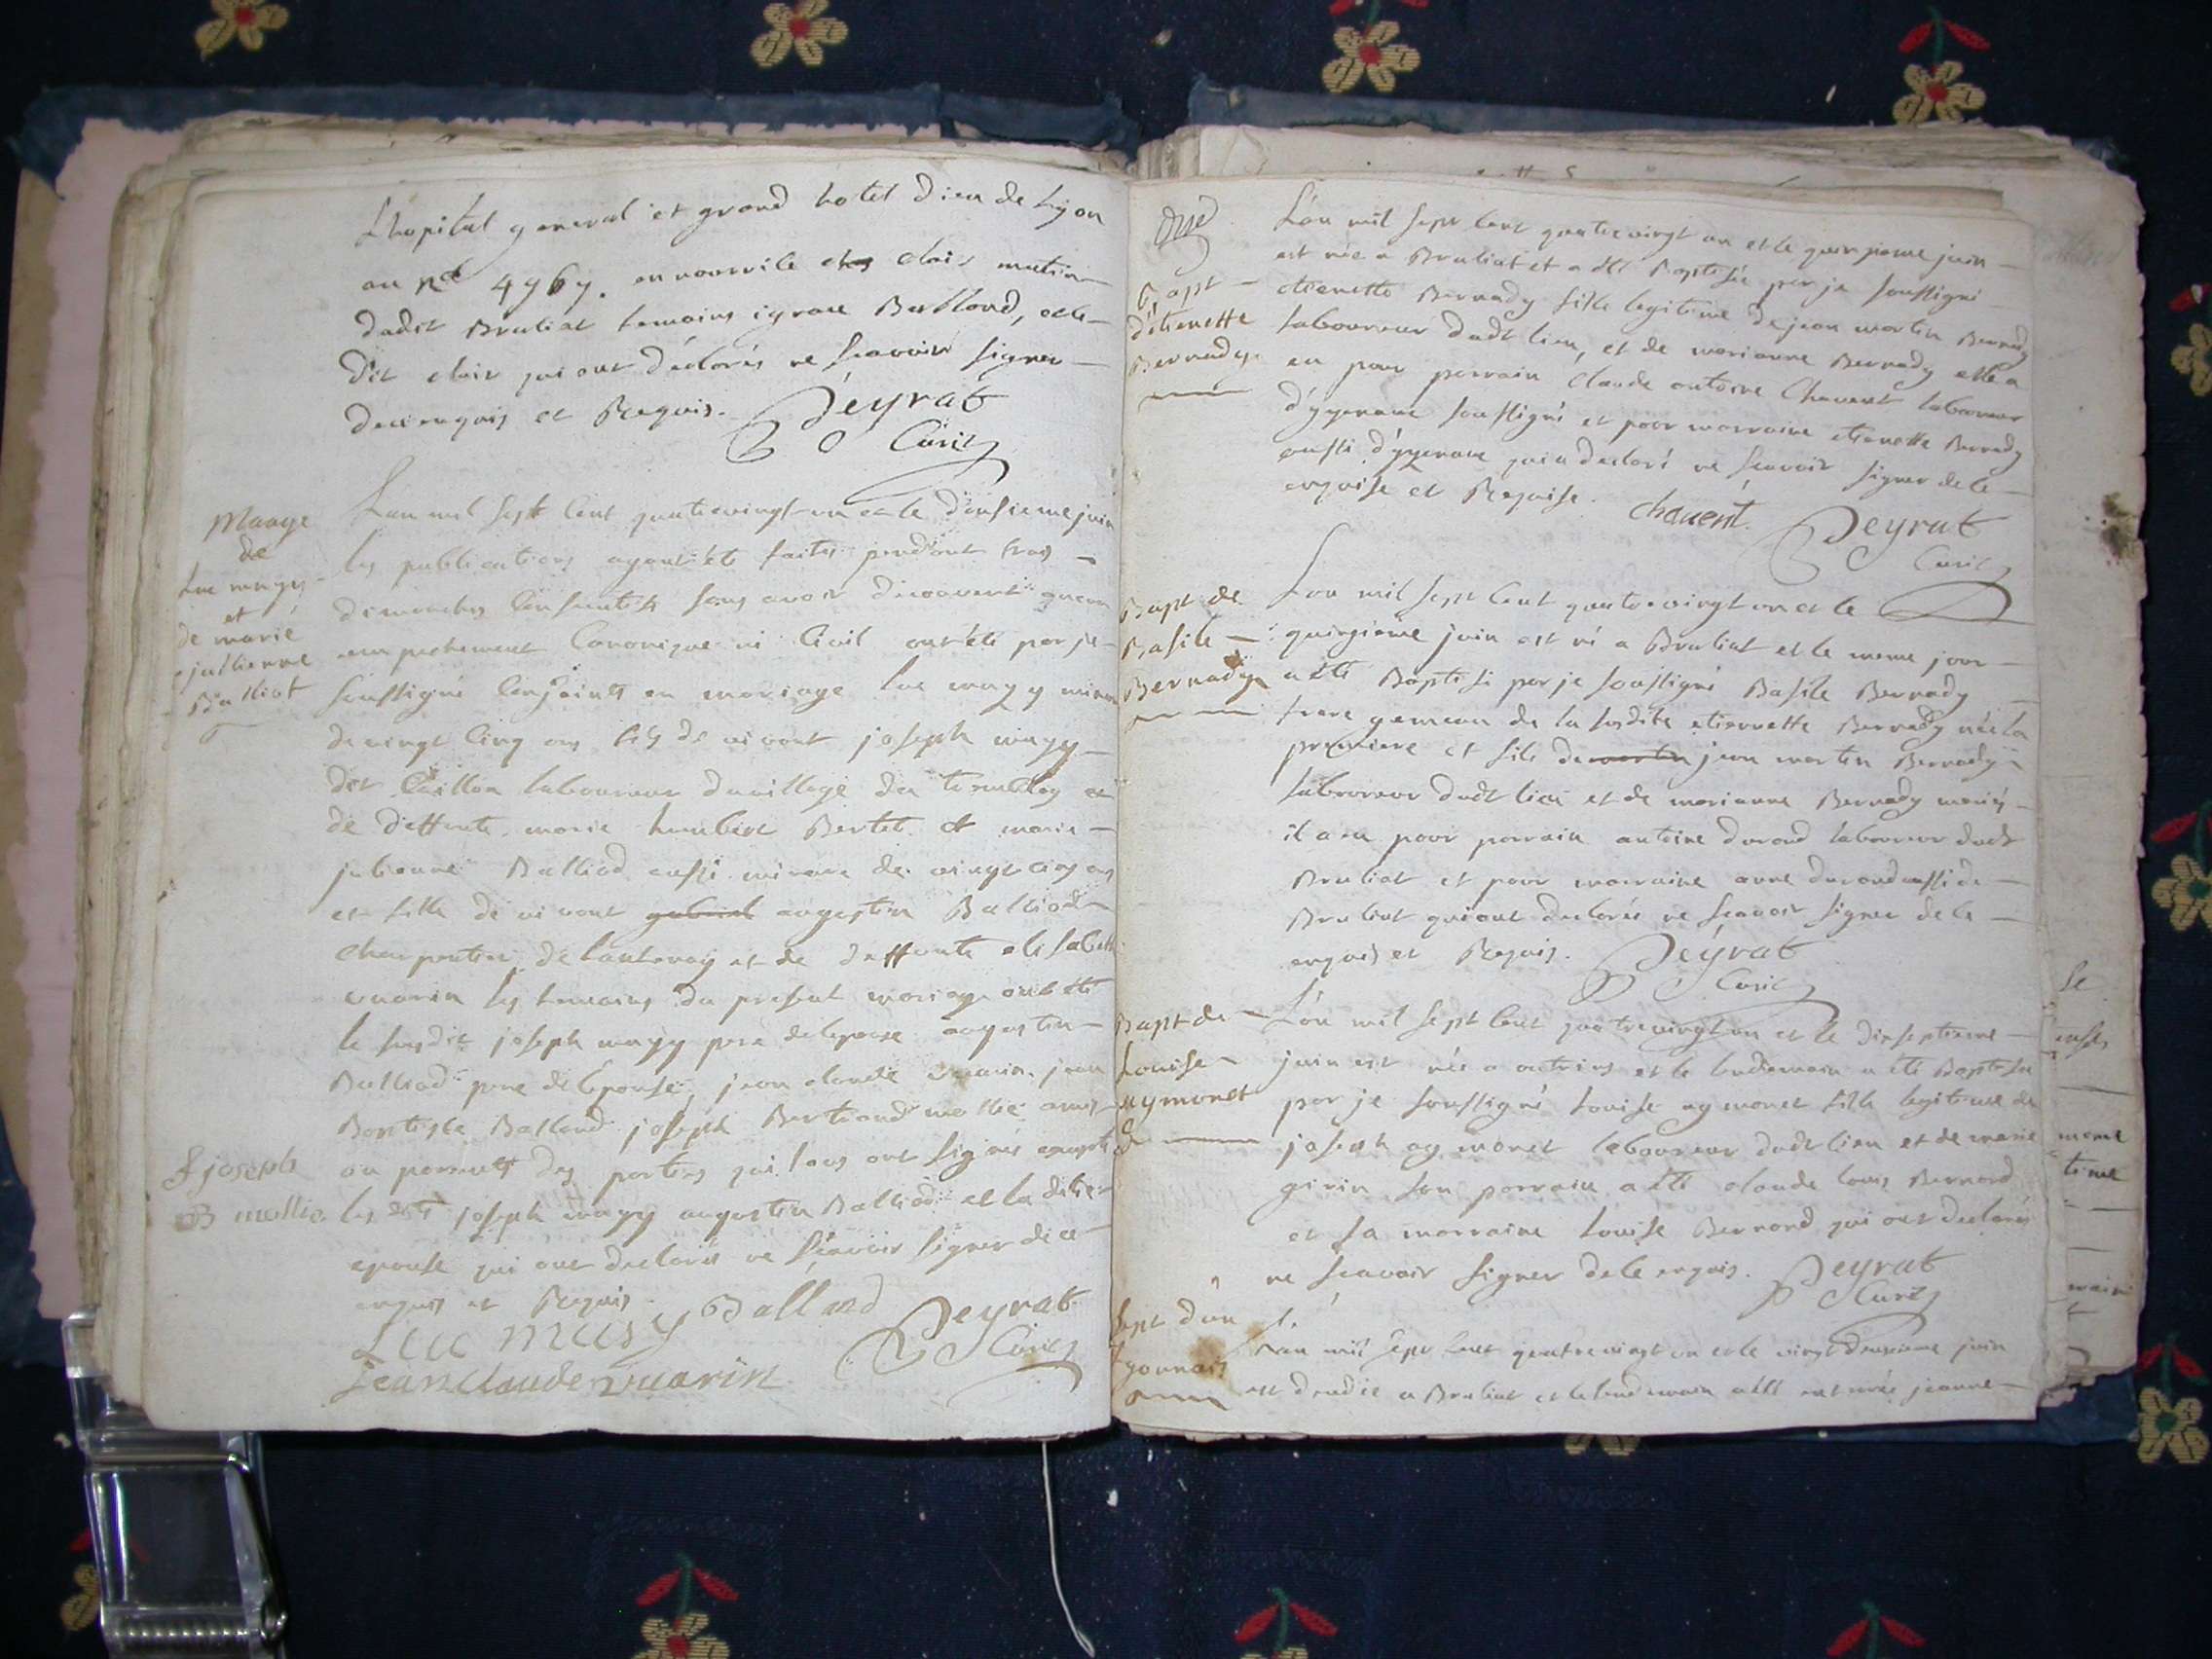 Lhopital general et grand hotel Dieu de Lyon
au 4967. en nourrice clair
dudit Bruliat temoins ignace Balland, et le
dit clair qui ont déclarés ne scavoir signer
de ce enquis et Requis. Peyrat
Curé
Mariage
de
Luc mugy
et
de marie
jullienne
Balliot
Lan mil sept cent quatrevingt un et le douzieme juin
les publications ayant été faites pendant trois
dimanches consecutifs sans avoir decouvert aucun
empechement Canonique ni Civil ont été par je
soussigné Conjoints en mariage Luc mugy mineur
de vingt cinq ans fils de vivant joseph mugy
dit laboureur du village du et
de deffunte marie Bertet et marie
julienne Balliod aussi mineure de vingt cinq ans
et fille de vivant gabriel augustin Balliod
charpentier de lantenay et de deffunte elisabeth
vuarin les temoins du present mariage ont été
le susdit joseph mugy pere de lepoux augustin
Balliod pere de lépouse, jean claude vuarin jean
Baptiste Balland joseph Bertrand mollie amis
ou parents des parties qui tous ont signés excepté
& joseph
B mollie
les dits joseph mugy augustin Balliod et la ditte
epouse qui ont declarés ne scavoir signer de ce
enquis et Requis.
Luc Musy Balland Peyrat
Jean claude vuarin Curé
Bapt
d'etienette
Bernady
Lan mil sept cent quatrevingt un et le quinzieme juin
est née a Bruliat et a été Baptisée par je soussigné
etienette Bernady fille legitime de jean martin Bernady
laboureur dudt lieu, et de marianne Bernady elle a
eu pour parrain Claude antoine Chavent laboureur
soussigné et pour marraine etienette Bernady
aussi qui a declaré ne scavoir signer de ce
enquise et Requise. chavent. Peyrat
Curé
Bapt de
Basile
Bernady
Lan mil sept cent quatrevingt un et le
quinzieme juin est né a Bruliat et le meme jour
a été Baptisé par je soussigné Basile Bernady
frere gemeau de la susdite etiennette Bernady née la
premiere et fils de martin jean martin Bernady
laboureur dudt lieu et de marianne Bernady mariés
il a eu pour parrain antoine durand laboureur dudt
Bruliat et pour marraine anne durand aussi de
Bruliat qui ont declarés ne scavoir signer de ce
enquis et Requis. Peyrat
Curé
Bapt de
Louise
aymonet
Lan mil sept cent quatrevingt un et le dixseptieme
juin est née a outrins et le lendemain a été Baptisée
par je soussigné Louise aymonet fille legitime de
joseph aymonet laboureur dudt lieu et de marie
girin son parrain a été claude louis Bernard
et sa marraine Louise Bernard qui ont declarés
ne scavoir signer de ce enquis. Peyrat
Curé
Sept d'un
Lyonnais
Lan mil sept cent quatrevingt un et le vingt deuxieme juin
est a Bruliat et le lendemain a été enterrée jeanne